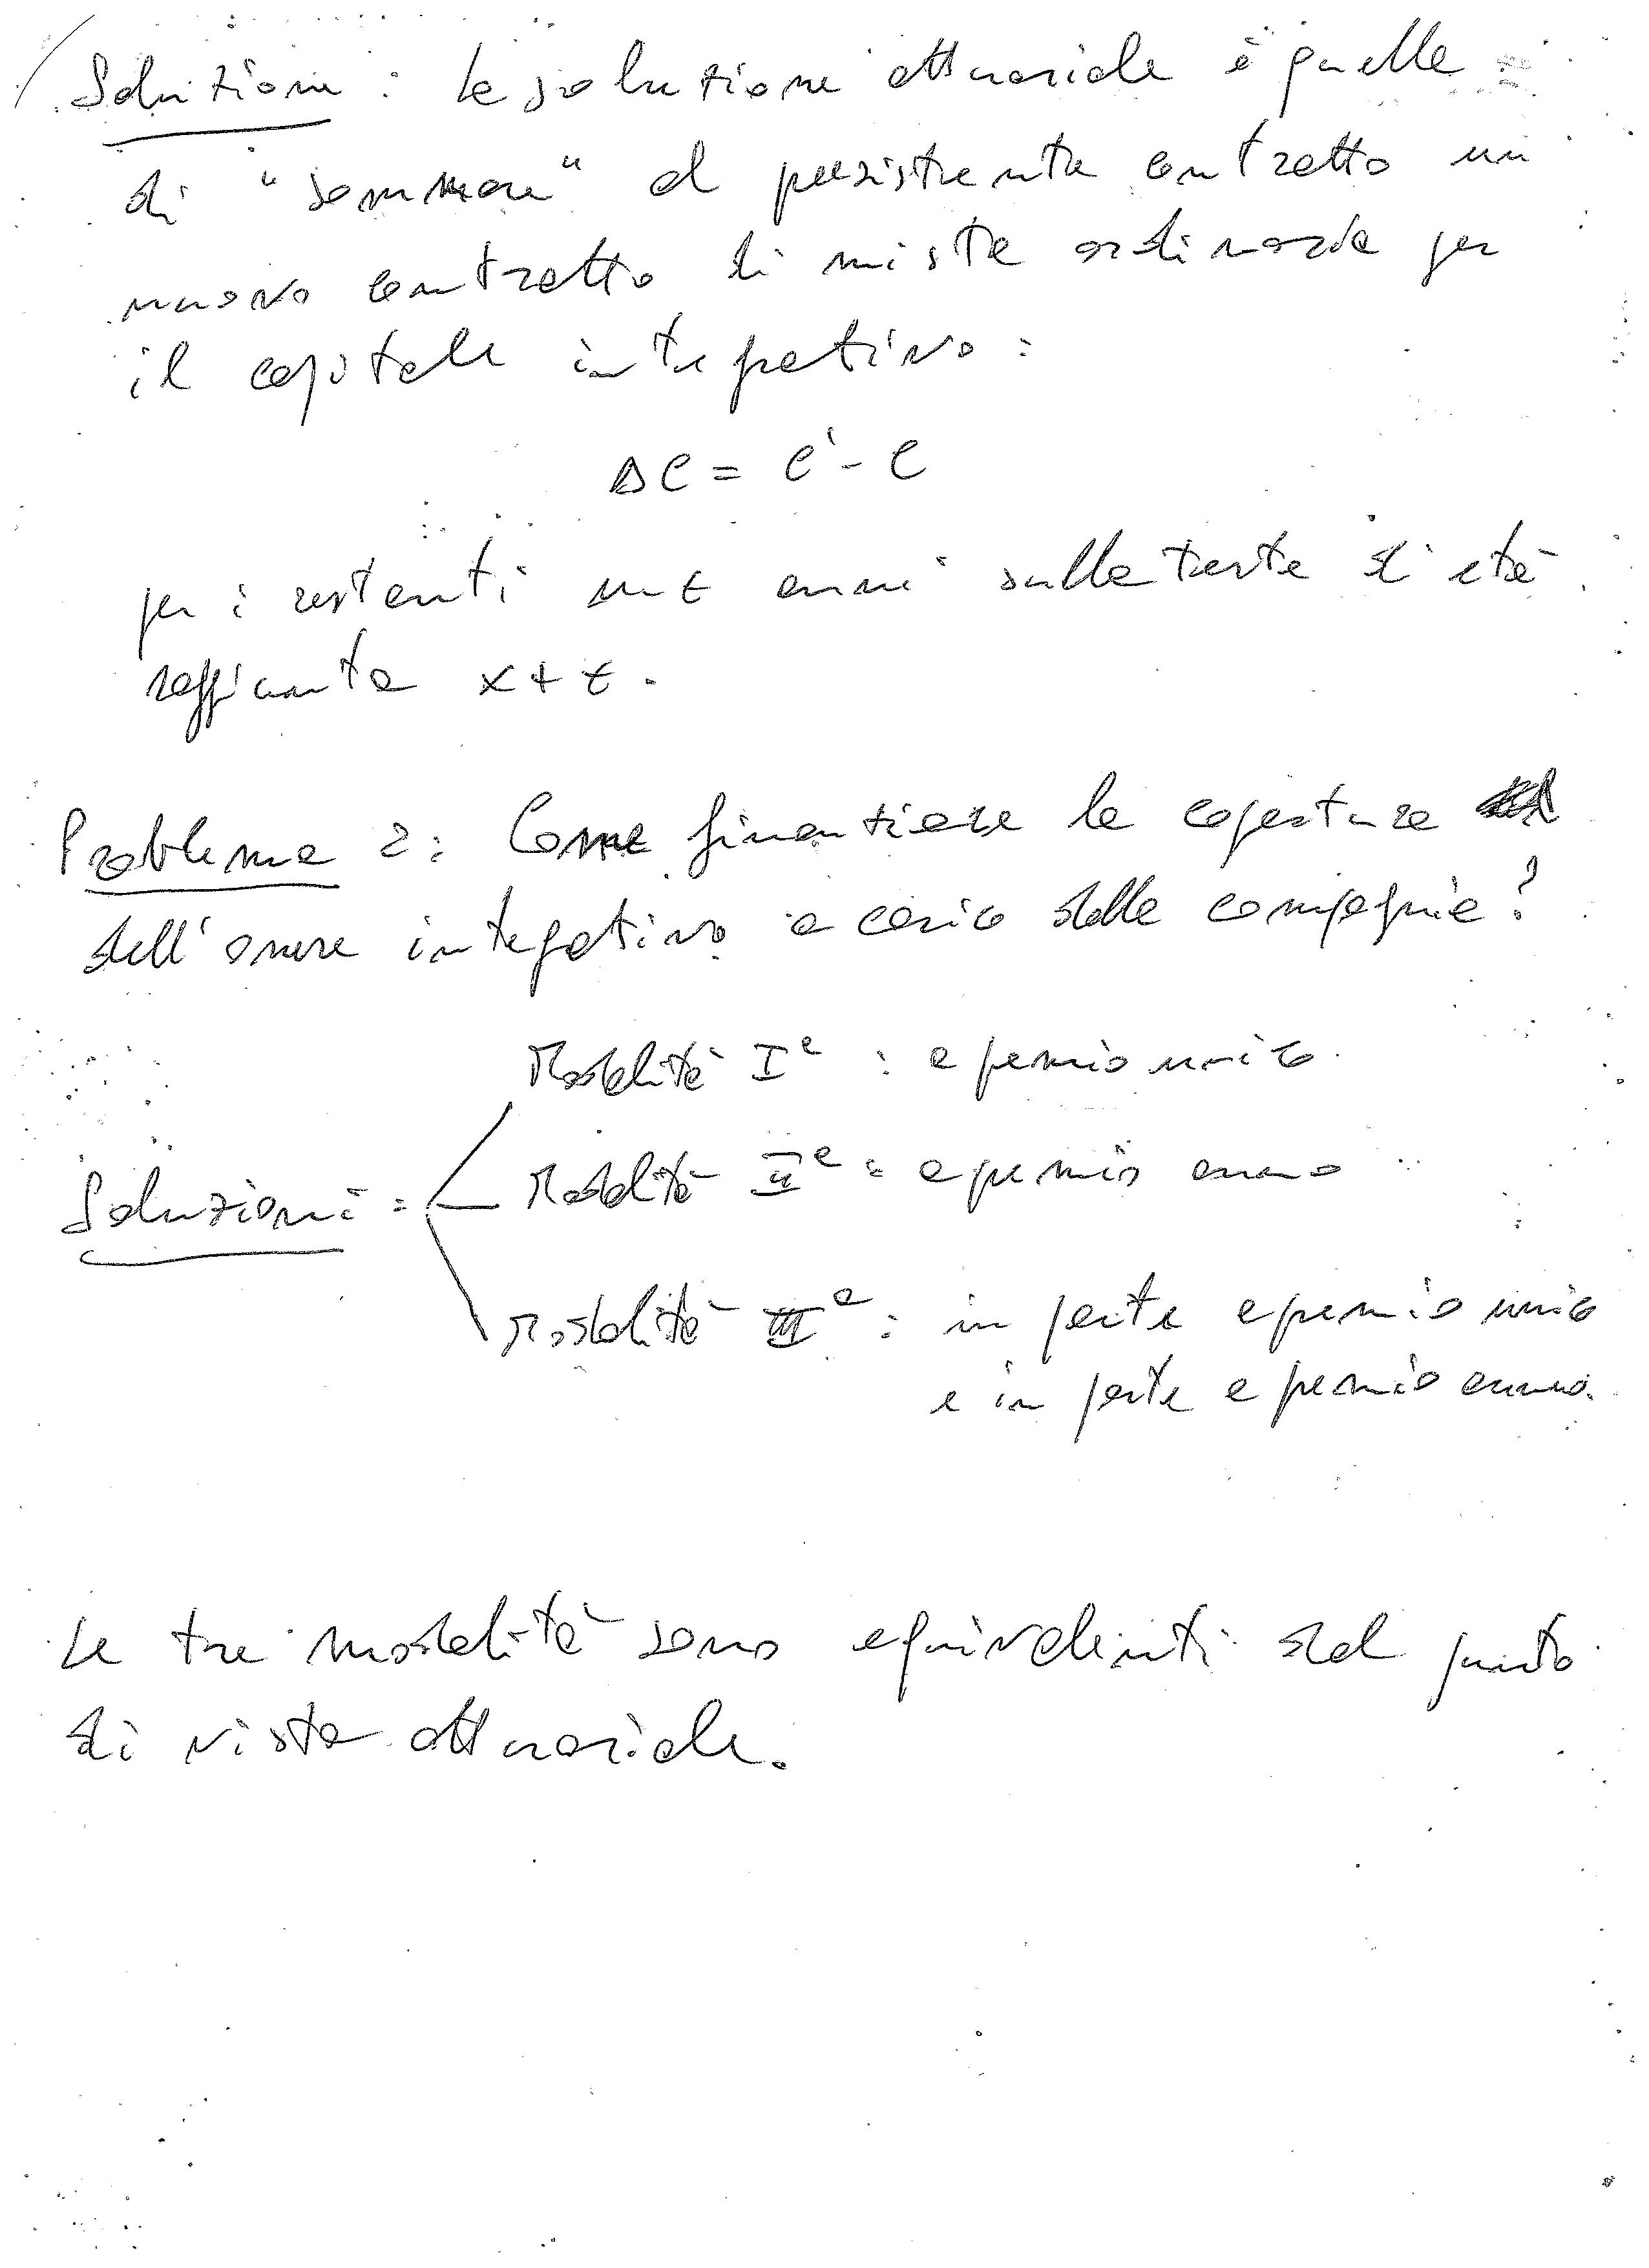 Soluzione : La soluzione attuariale è quella
di "sommare" al preesistente contratto un
nuovo contratto di mista ordinaria per
il capitale integrativo :
ΔC = C' - C
per i restanti n-t anni sulla testa di età
raggiunta x+t.
Problema 2 : Come finanziare la copertura
dell'onere integrativo a carico della compagnia?
Modalità Iª : a premio unico.
Modalità IIª : a premio annuo
Soluzioni :
Modalità IIIª : in parte a premio unico
e in parte a premio annuo.
Le tre modalità sono equivalenti dal punto
di vista attuariale.